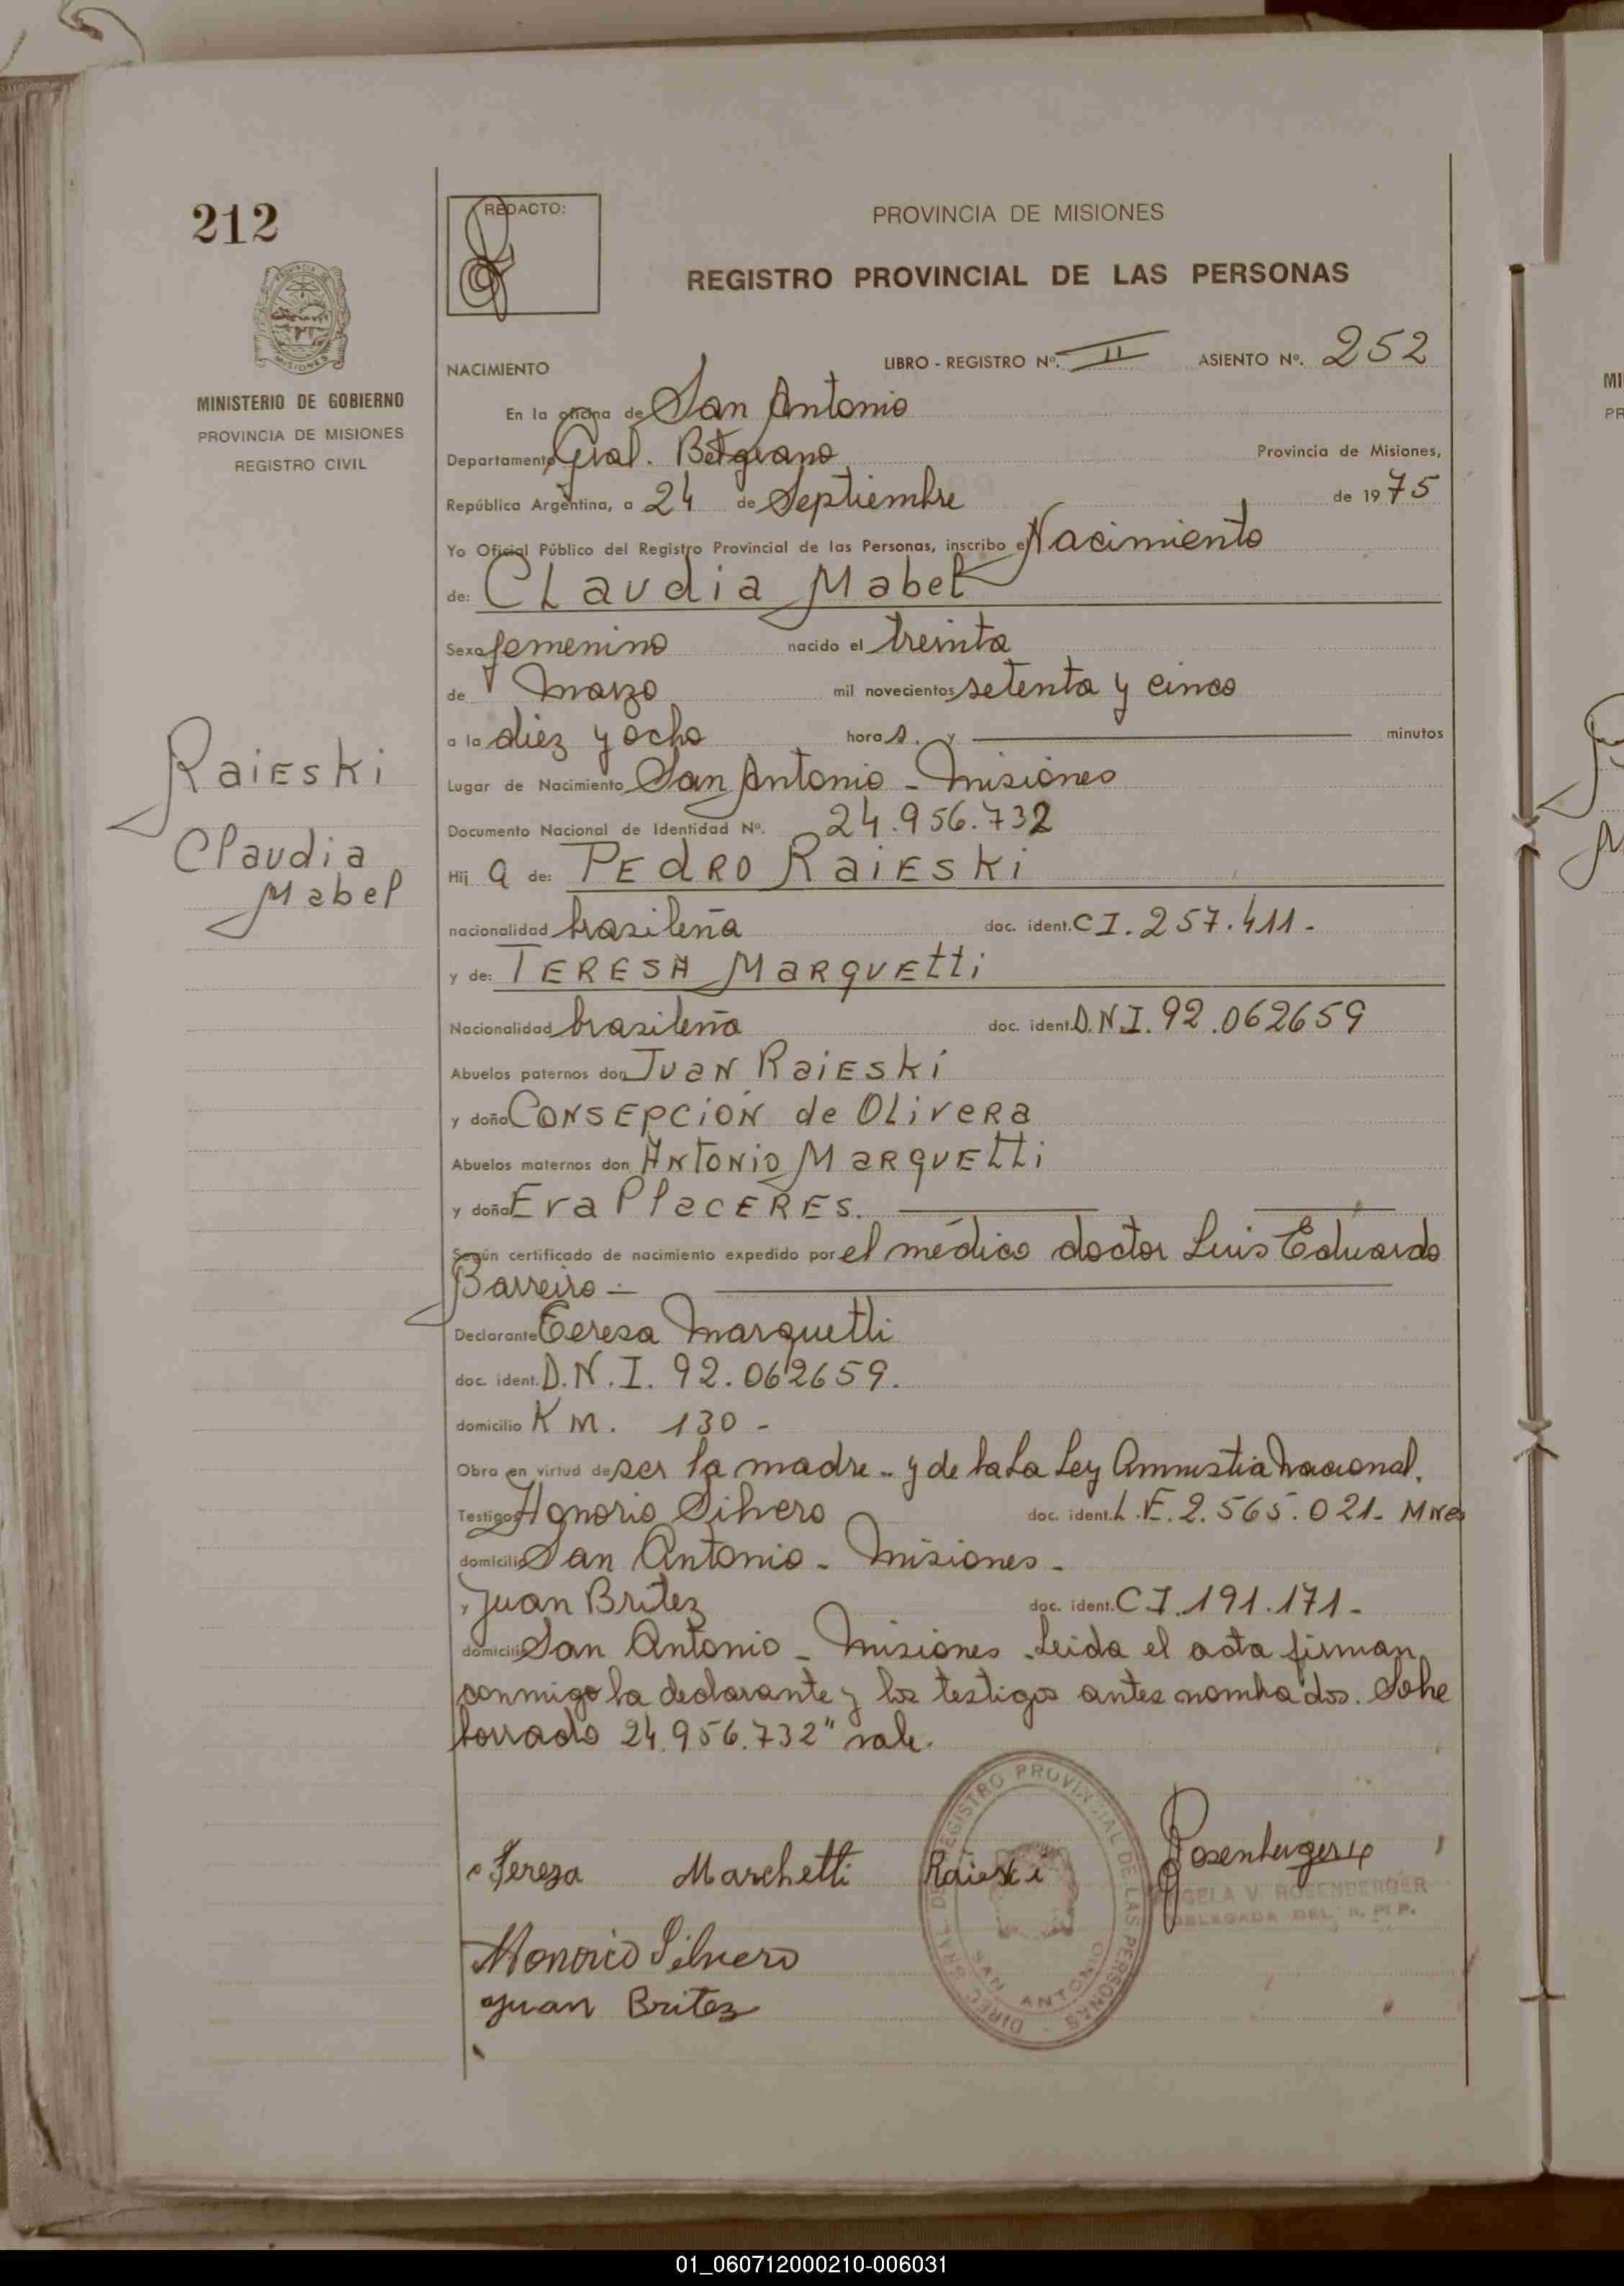 212
REDACTO:
PROVINCIA DE MISIONES
REGISTRO PROVINCIAL DE LAS PERSONAS
PROVINCIA DE
MISIONES
MINISTERIO DE GOBIERNO
PROVINCIA DE MISIONES
REGISTRO CIVIL
NACIMIENTO LIBRO - REGISTRO Nº. II ASIENTO Nº. 252
En la oficina de San Antonio
Departamento Gral. Belgrano Provincia de Misiones,
República Argentina, a 24 de Septiembre de 1975
Yo Oficial Público del Registro Provincial de las Personas, inscribo el Nacimiento
de: CLaudia Mabel
Sexo femenino nacido el treinta
de marzo mil novecientos setenta y cinco
a la diez y ocho horas. y minutos
Raieski
Claudia
Mabel
Lugar de Nacimiento San Antonio - Misiones
Documento Nacional de Identidad Nº. 24.956.732
Hij a de: PEdRO RaiESki
nacionalidad brasileña doc. ident. CI. 257.411.-
y de: TERESA MaRquEtti
Nacionalidad brasileña doc. ident. D.N.I. 92.062659
Abuelos paternos don JuaN RaiESki
y doña CONSEPCIÓN de OLivERa
Abuelos maternos don ANTONiO MaRquEtti
y doña Eva PlaCERES.
Según certificado de nacimiento expedido por el médico doctor Luis Eduardo
Barreiro.-
Declarante Teresa Marquetti
doc. ident. D.N.I. 92.062659.
domicilio KM. 130-
Obra en virtud de ser la madre.. y de la La Ley Amnistia Nacional.
Testigos Honorio Silvero doc. ident. L.E. 2.565.021- Mnes
domicilio San Antonio - Misiones-
y Juan Britez doc. ident. CI. 191.171-
domicilio San Antonio - Misiones. Leida el acta firman
conmigo la declarante y los testigos antes nombrados. Sobre
borrado 24.956.732" vale.
Tereza Marchetti Raieski
Rosenberger
ANGELA V. ROSENBERGER
DELEGADA DEL R. P. P.
DIREC. GRAL. DEL REGISTRO PROVINCIAL DE LAS PERSONAS
SAN ANTONIO
Honorio Silvero
Juan Britez
MI
PR
01_060712000210-006031